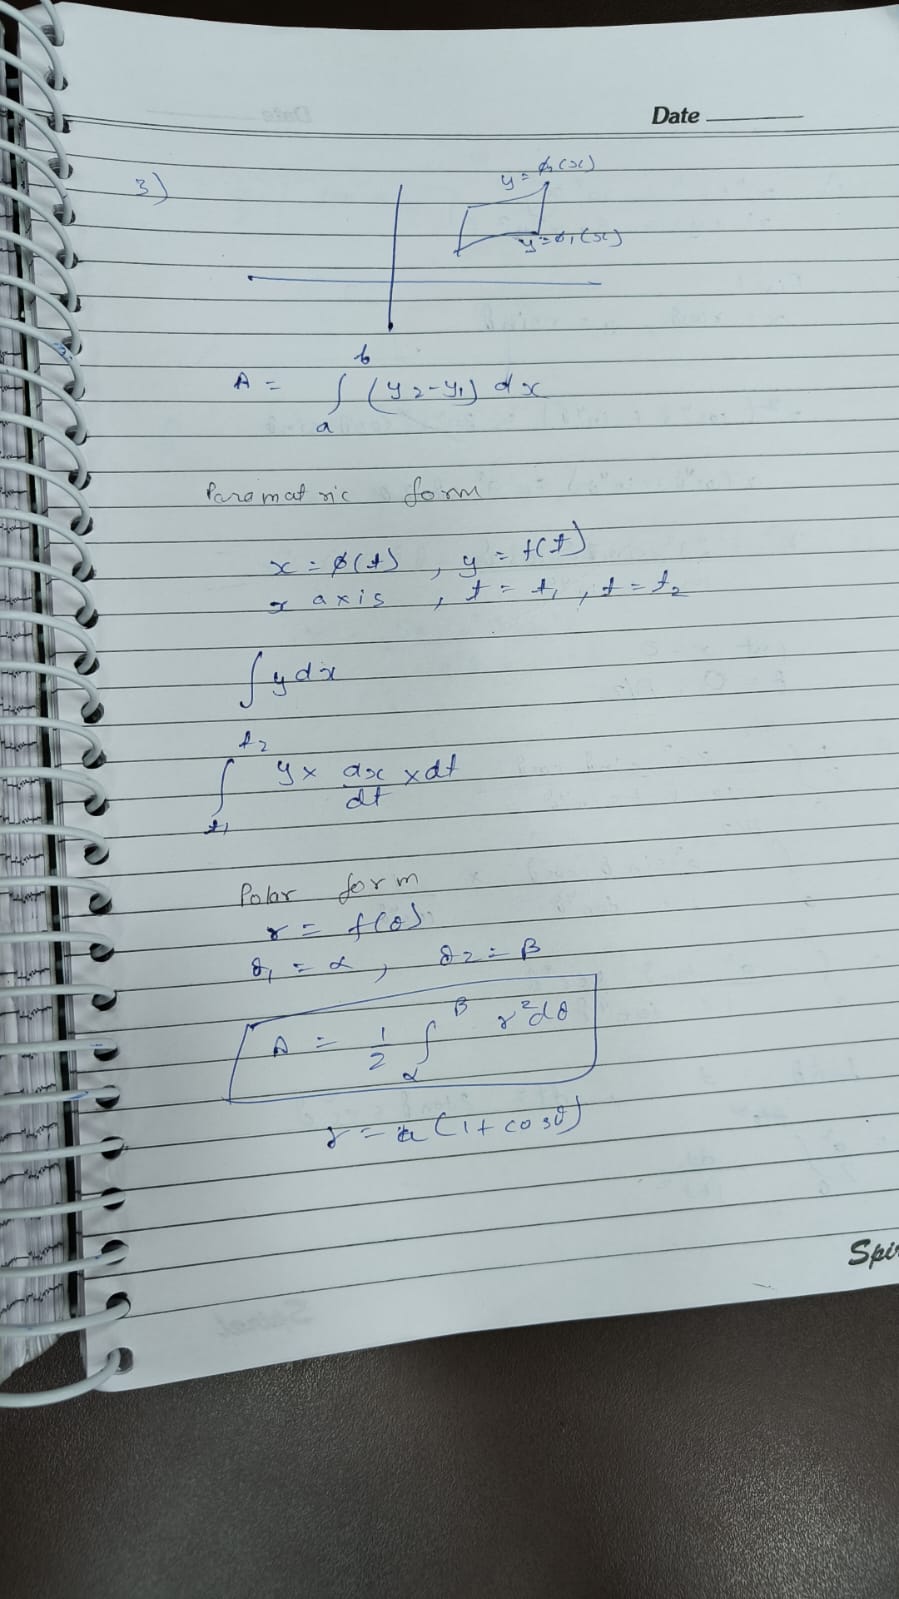 Date
3)
y = ϕ₂(x)
y = ϕ₁(x)
A = ∫ₐᵇ (y₂-y₁) dx
Paramatric form
x = ϕ(t) , y = f(t)
x axis , t = t₁ , t = t₂
∫ y dx
∫ₜ₁ᵗ² y × dx/dt × dt
Polar form
r = f(θ)
θ₁ = α , θ₂ = β
A = 1/2 ∫_α^β r² dθ
r = a (1 + cosθ)